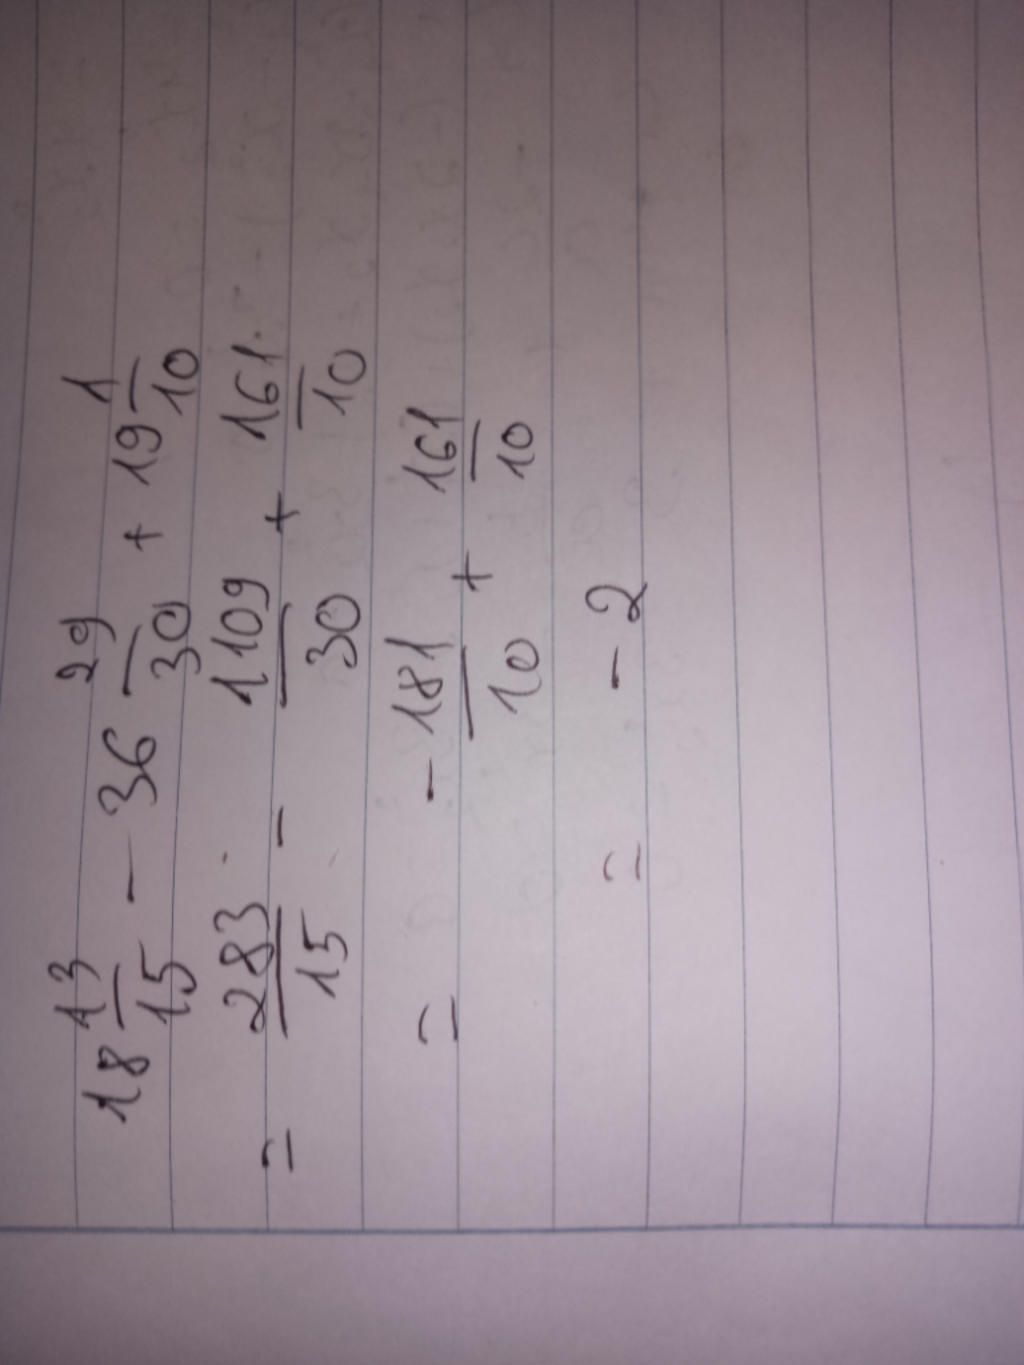 18 13/15 - 36 29/30 + 19 1/10
= 283/15 - 1109/30 + 161/10
= -181/10 + 161/10
= -2